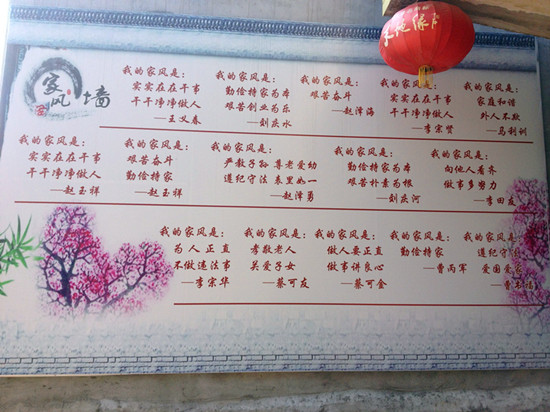 家风墙
我的家风是:
实实在在干事
干干净净做人
—王义春
我的家风是:
勤俭持家为本
艰苦创业为乐
—刘庆水
我的家风是:
艰苦奋斗
—赵泽海
我的家风是:
实实在在干事
干干净净做人
—李宗贤
我的家风是:
家庭和谐
外人不欺
—马利训
我的家风是:
实实在在干事
干干净净做人
—赵玉祥
我的家风是:
艰苦奋斗
勤俭持家
—赵玉祥
我的家风是:
严教子孙 尊老爱幼
遵纪守法 表里如一
—赵泽勇
我的家风是:
勤俭持家为本
艰苦朴素为根
—刘庆河
我的家风是:
向他人看齐
做事多努力
—李田友
我的家风是:
为人正直
不做违法事
—李宗华
我的家风是:
孝敬老人
关爱子女
—蔡可友
我的家风是:
做人要正直
做事讲良心
—蔡可金
我的家风是:
勤俭持家
—曹丙军
我的家风是:
遵纪守法
爱国爱家